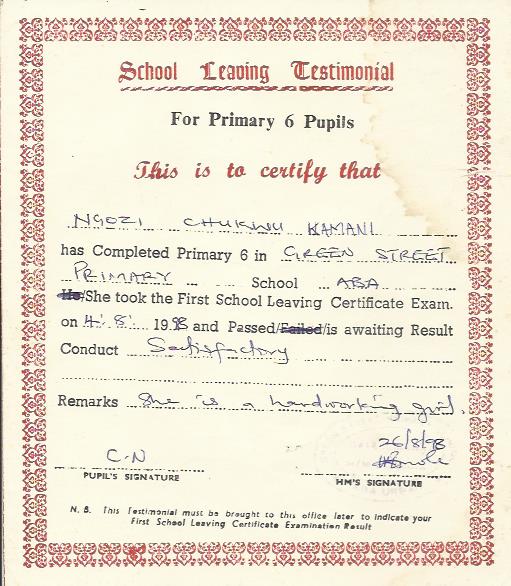 School Leaving Testimonial
For Primary 6 Pupils
This is to certify that
NGOZI CHUKWU KAMANI
has Completed Primary 6 in GREEN STREET
PRIMARY School ABA
He/She took the First School Leaving Certificate Exam.
on 4. 8. 1998 and Passed/Failed/is awaiting Result
Conduct Satisfactory
Remarks She is a hardworking girl.
26/8/98
C.N
PUPIL'S SIGNATURE HM'S SIGNATURE
N. B. This Testimonial must be brought to this office later to indicate your
First School Leaving Certificate Examination Result